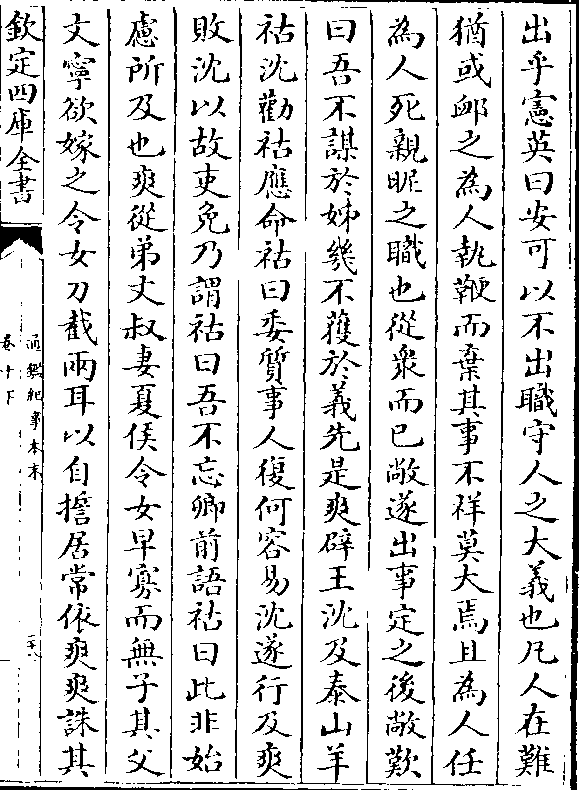 出乎憲英曰安可以不出職守人之大義也凡人在難
猶或卹之為人執鞭而棄其事不祥莫大焉且為人任
為人死親昵之職也從衆而已敞遂出事定之後敞歎
曰吾不謀於姊幾不獲於義先是爽辟王沈及泰山羊
祜沈勸祜應命祜曰委質事人復何容易沈遂行及爽
敗沈以故吏免乃謂祜曰吾不忘卿前語祜曰此非始
慮所及也爽從弟文叔妻夏侯令女早寡而無子其父
文寧欲嫁之令女刀截兩耳以自誓居常依爽爽誅其
欽定四庫全書
通鑑紀事本末
卷十下